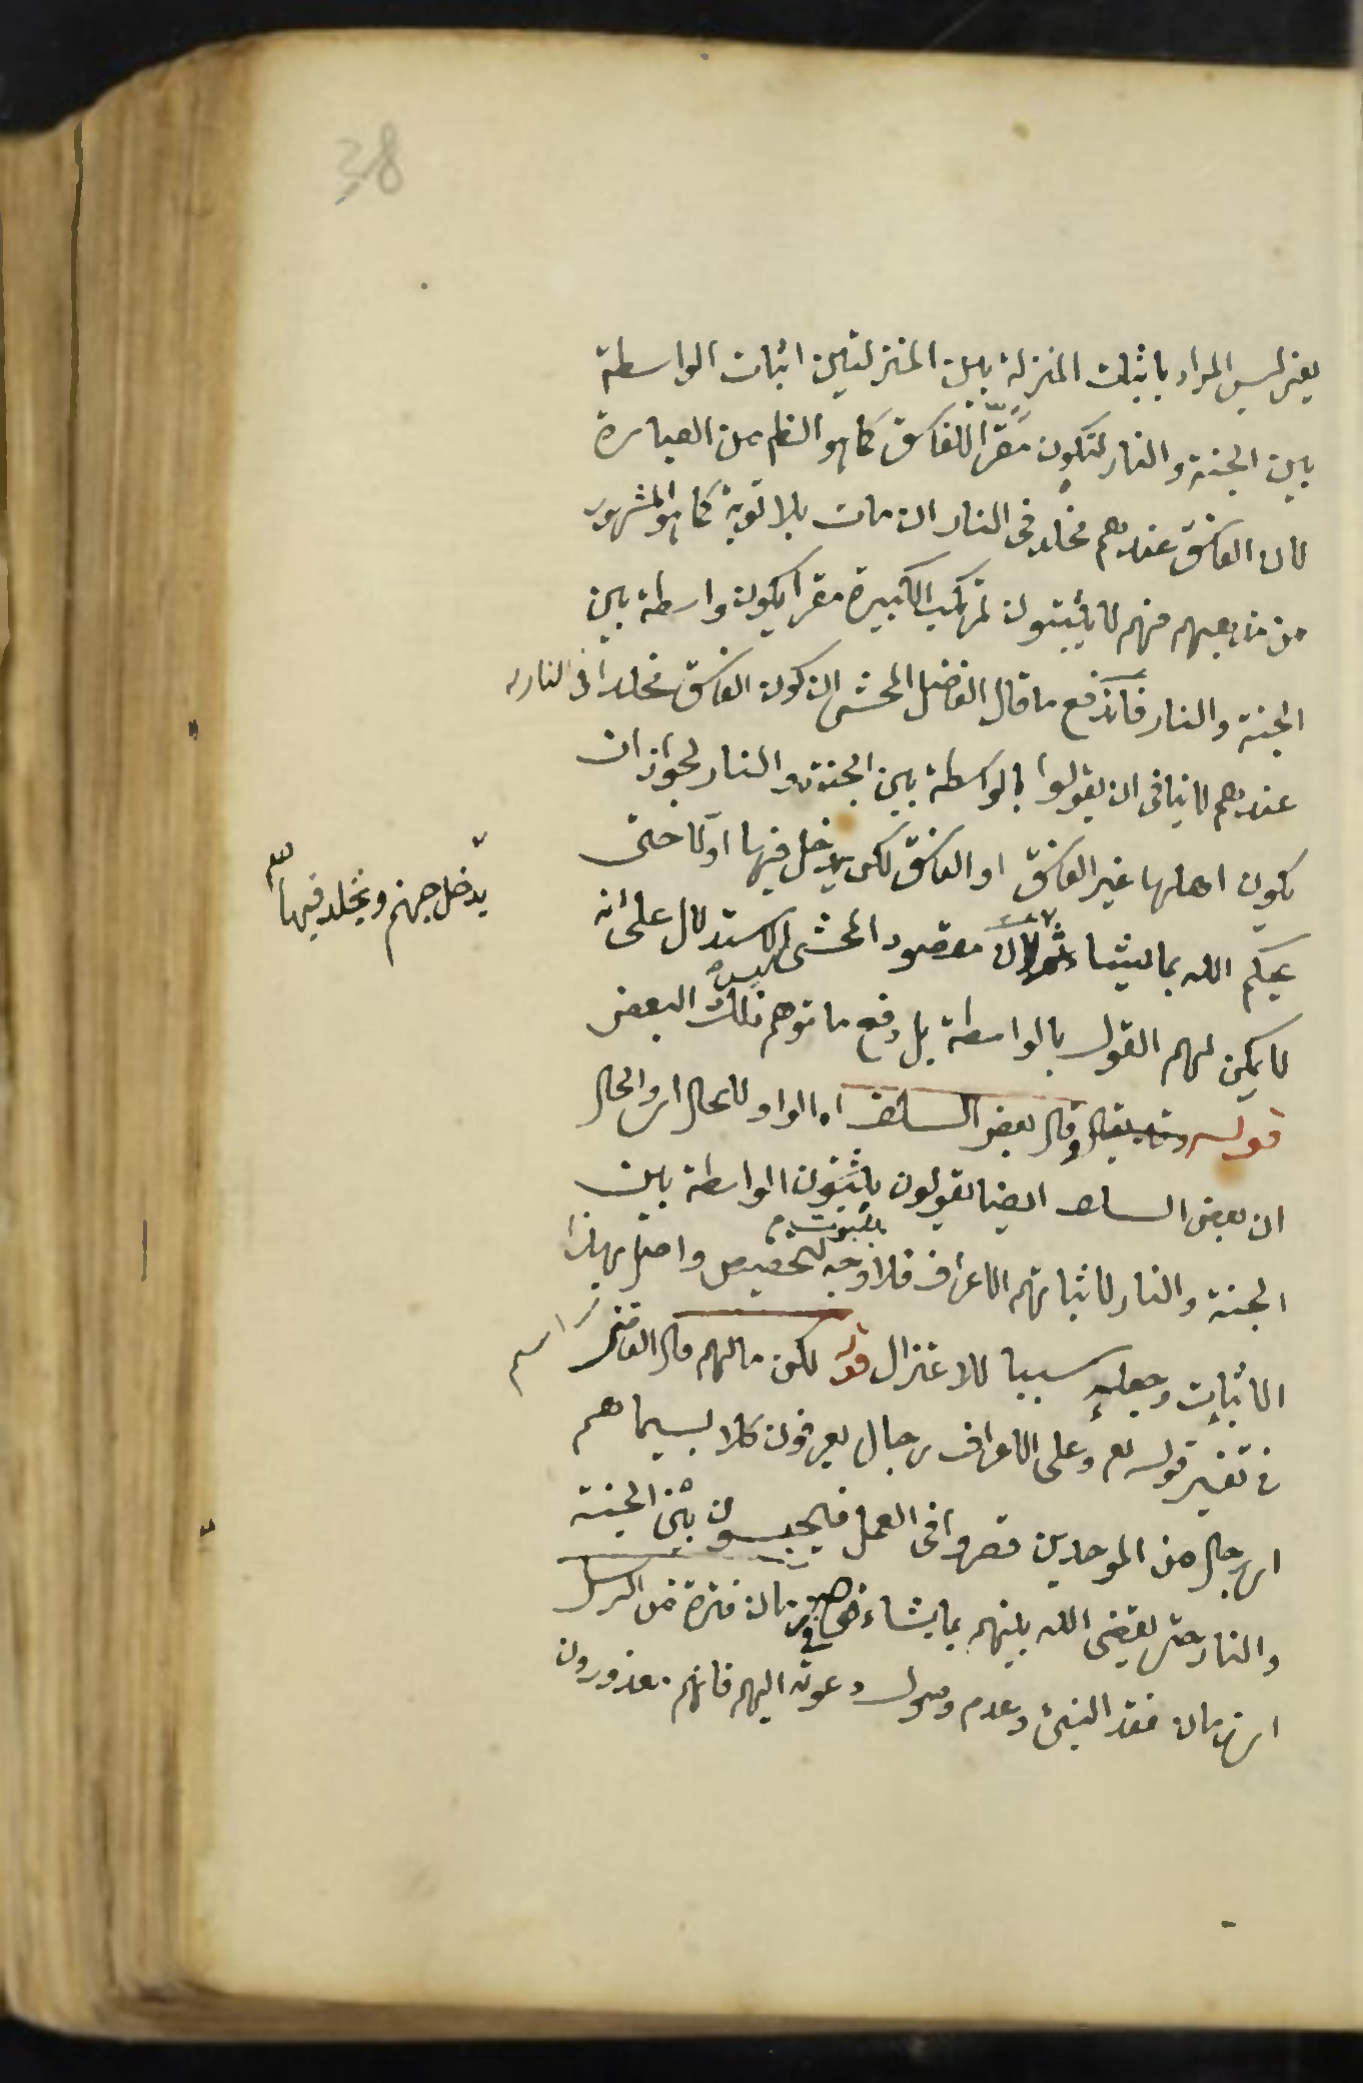 38
يعنى ليس المراد باثبات المنزلة بين المنزلتين اثبات الواسطة
بين الجنة والنار لتكون مقرّا للفاسق كما هو الظم من العبارة
لان الفاسق عندهم مخلد فى النار ان مات بلا توبة كما هو المشهور
من مذهبهم فهم لا يثبتون لمرتكب الكبيرة مقرا يكون واسطة بين
الجنة والنار فاندفع ما قال الفاضل المحشى ان كون الفاسق مخلدا فى النار
عندهم لا ينافى ان يقولوا بالواسطة بين الجنة والنار لجواز ان
يكون اهلها غير الفاسق او الفاسق لكن يدخل فيها اوّلا حتى
يحكم الله بما يشاء لان مقصود المحشى ليس الاستدلال على انه
يدخل جهنم ويخلد فيها
لا يمكن لهم القول بالواسطة بل دفع ما توهم ذلك البعض
قوله وقال بعض السلف اه الواو للحال اى والحال
ان بعض السلف ايضا يقولون بثبوت الواسطة بين
الجنة والنار لاثباتهم الاعراف فلا وجه لتخصيص واصل بهذا
الاثبات وجعله سببا للاعتزال قوله لكن مالهم قال القاضى
فى تفسير قوله تع وعلى الاعراف رجال يعرفون كلا بسيماهم
اى رجال من الموحدين قصروا فى العمل فيحبسون بين الجنة
والنار حتى يقضى الله بينهم بما يشاء فى زمان فترة من الرسل
اى زمان فقد النبى وعدم وصول دعوته اليهم فانهم معذورون